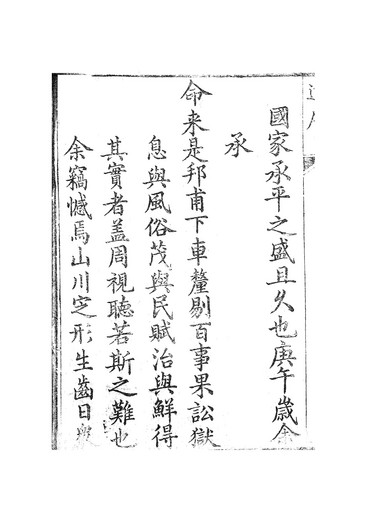 國家承平之盛且久也庚午歲余
承
命来是邦甫下車釐剔百事果訟獄
息與風俗茂與民賦治與鮮得
其實者盖周視聽若斯之難也
余竊憾焉山川定形生齒日